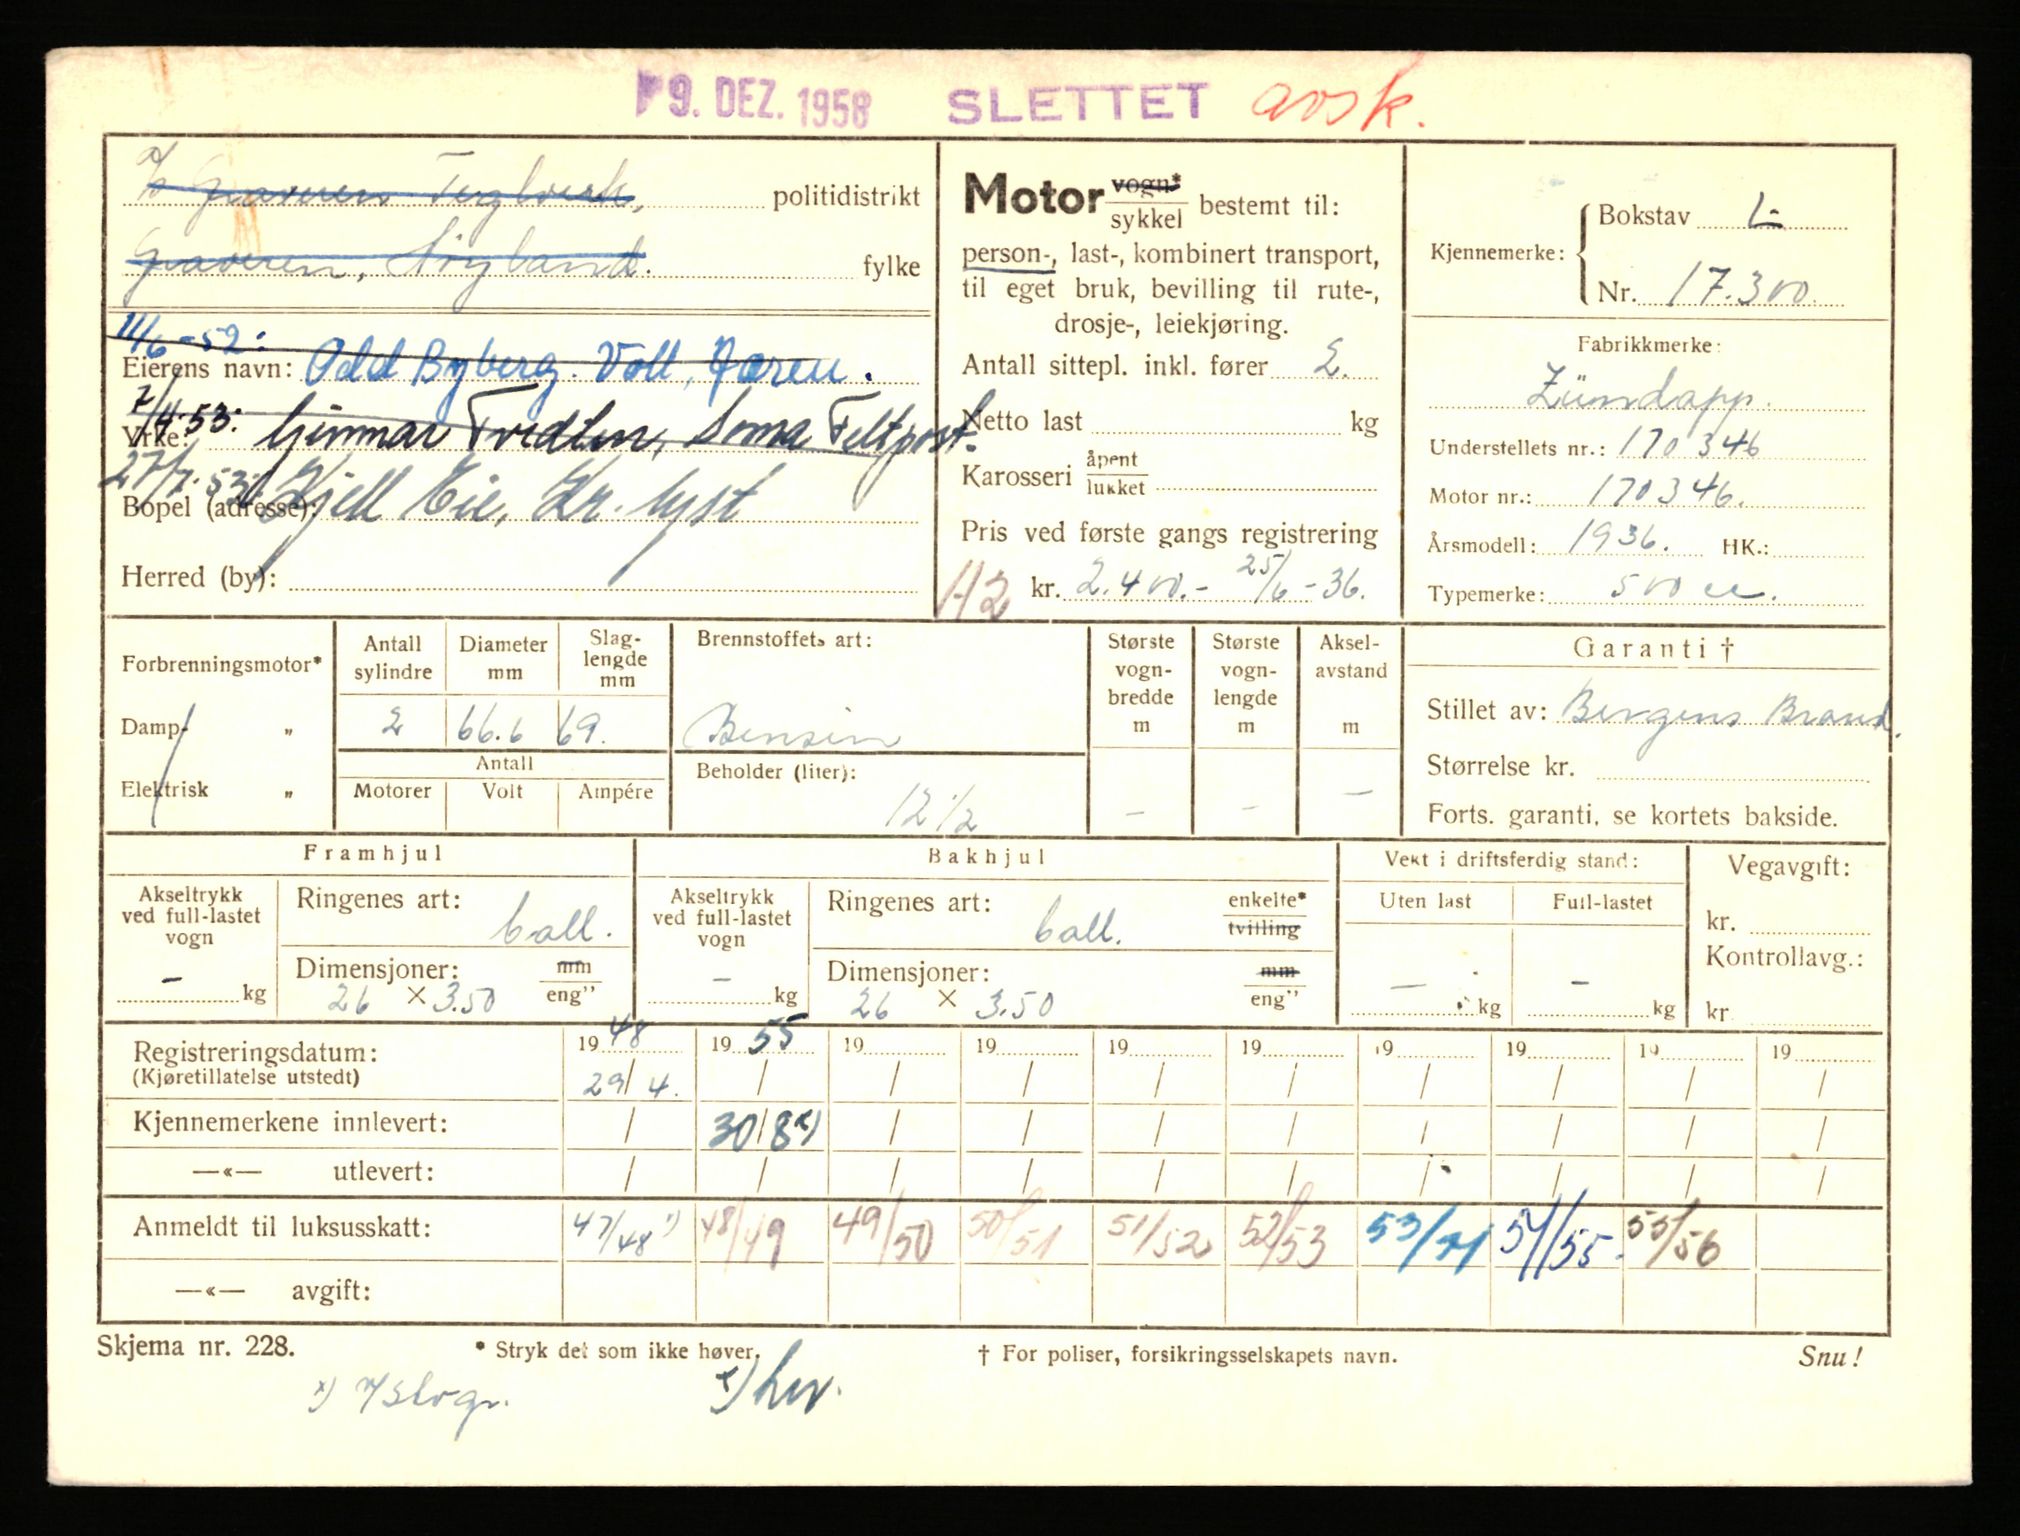 9. DEZ. 1958 SLETTET avsk.
Graveren Teglverk, politidistrikt
Graveren, fylke
11/6-52:
Eierens navn: Odd Byberg. Voll, Jæren.
7/4.53: Gunnar Tvedten, Soma Feltpost.
Yrke:
27/7.53. Kjell Eie, Kr. lyst
Bopel (adresse):
Herred (by):
Motor vogn* sykkel bestemt til:
person-, last-, kombinert transport,
til eget bruk, bevilling til rute-,
drosje-, leiekjøring.
Antall sittepl. inkl. fører 2.
Netto last kg
Karosseri åpent lukket
Pris ved første gangs registrering
H2 kr. 2.400.- 25/6-36.
Kjennemerke: Bokstav L-
Nr. 17.300.
Fabrikkmerke:
Zündapp.
Understellets nr.: 170346
Motor nr.: 170346.
Årsmodell: 1936. HK.:
Typemerke: 500 cc.
Forbrenningsmotor*
Damp- „
Elektrisk „
Antall sylindre Diameter mm Slag-lengde mm
2 66.6 69.
Antall
Motorer Volt Ampére
Brennstoffets art:
Bensin
Beholder (liter):
12 1/2
Største vogn-bredde m
–
Største vogn-lengde m
–
Aksel-avstand m
–
Garanti †
Stillet av: Bergens Brand.
Størrelse kr.
Forts. garanti, se kortets bakside.
Framhjul
Akseltrykk ved full-lastet vogn
– kg
Ringenes art: ball.
Dimensjoner: mm eng"
26 × 3.50
Bakhjul
Akseltrykk ved full-lastet vogn
– kg
Ringenes art: ball. enkelte* tvilling
Dimensjoner: mm eng"
26 × 3.50
Vekt i driftsferdig stand:
Uten last Full-lastet
– kg – kg
Vegavgift:
kr.
Kontrollavg.:
kr.
Registreringsdatum: 1948 1955 19 19 19 19 19 19 19 19
(Kjøretillatelse utstedt) 29/4. / / / / / / / / /
Kjennemerkene innlevert: / 30/8 x) / / / / / / / /
—«— utlevert: / / / / / / / / / /
Anmeldt til luksusskatt: 47/48 x) 48/49 49/50 50/51 51/52 52/53 53/54 54/55. 55/56
—«— avgift:
Skjema nr. 228. * Stryk det som ikke høver. † For poliser, forsikringsselskapets navn. Snu!